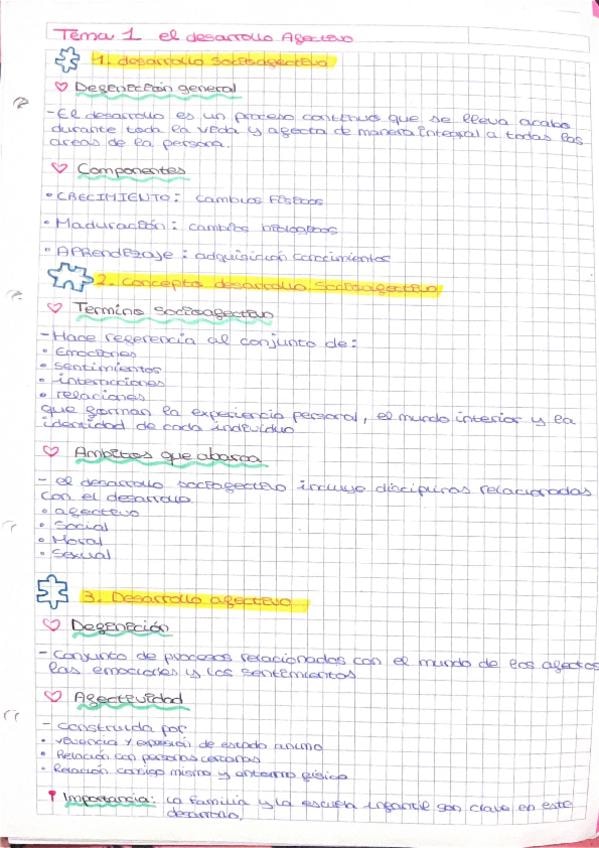 Tema 1 el desarrollo Afectivo
1. desarrollo socioafectivo
Definición general
- El desarrollo es un proceso continuo que se lleva acabo
durante toda la vida y afecta de manera integral a todas las
áreas de la persona.
Componentes
• CRECIMIENTO: cambios físicos
• Maduración: cambios biológicos
• APRendizaje: adquisición conocimientos
2. Concepto desarrollo socioafectivo
Termino socioafectivo
- Hace referencia al conjunto de:
• Emociones
• sentimientos
• interacciones
• relaciones
que forman la experiencia personal, el mundo interior y la
identidad de cada individuo
Ambitos que abarca
- el desarrollo socioafectivo incluye disciplinas relacionadas
con el desarrollo.
• afectivo
• Social
• Moral
• Sexual
3. Desarrollo afectivo
Definición
- Conjunto de procesos relacionados con el mundo de los afectos
las emociones y los sentimientos
Afectividad
- construida por
• vivencia y expresión de estado animo
• Relación con personas cercanas
• Relación consigo mismo y entorno físico
Importancia: La familia y la escuela infantil son clave en este
desarrollo.